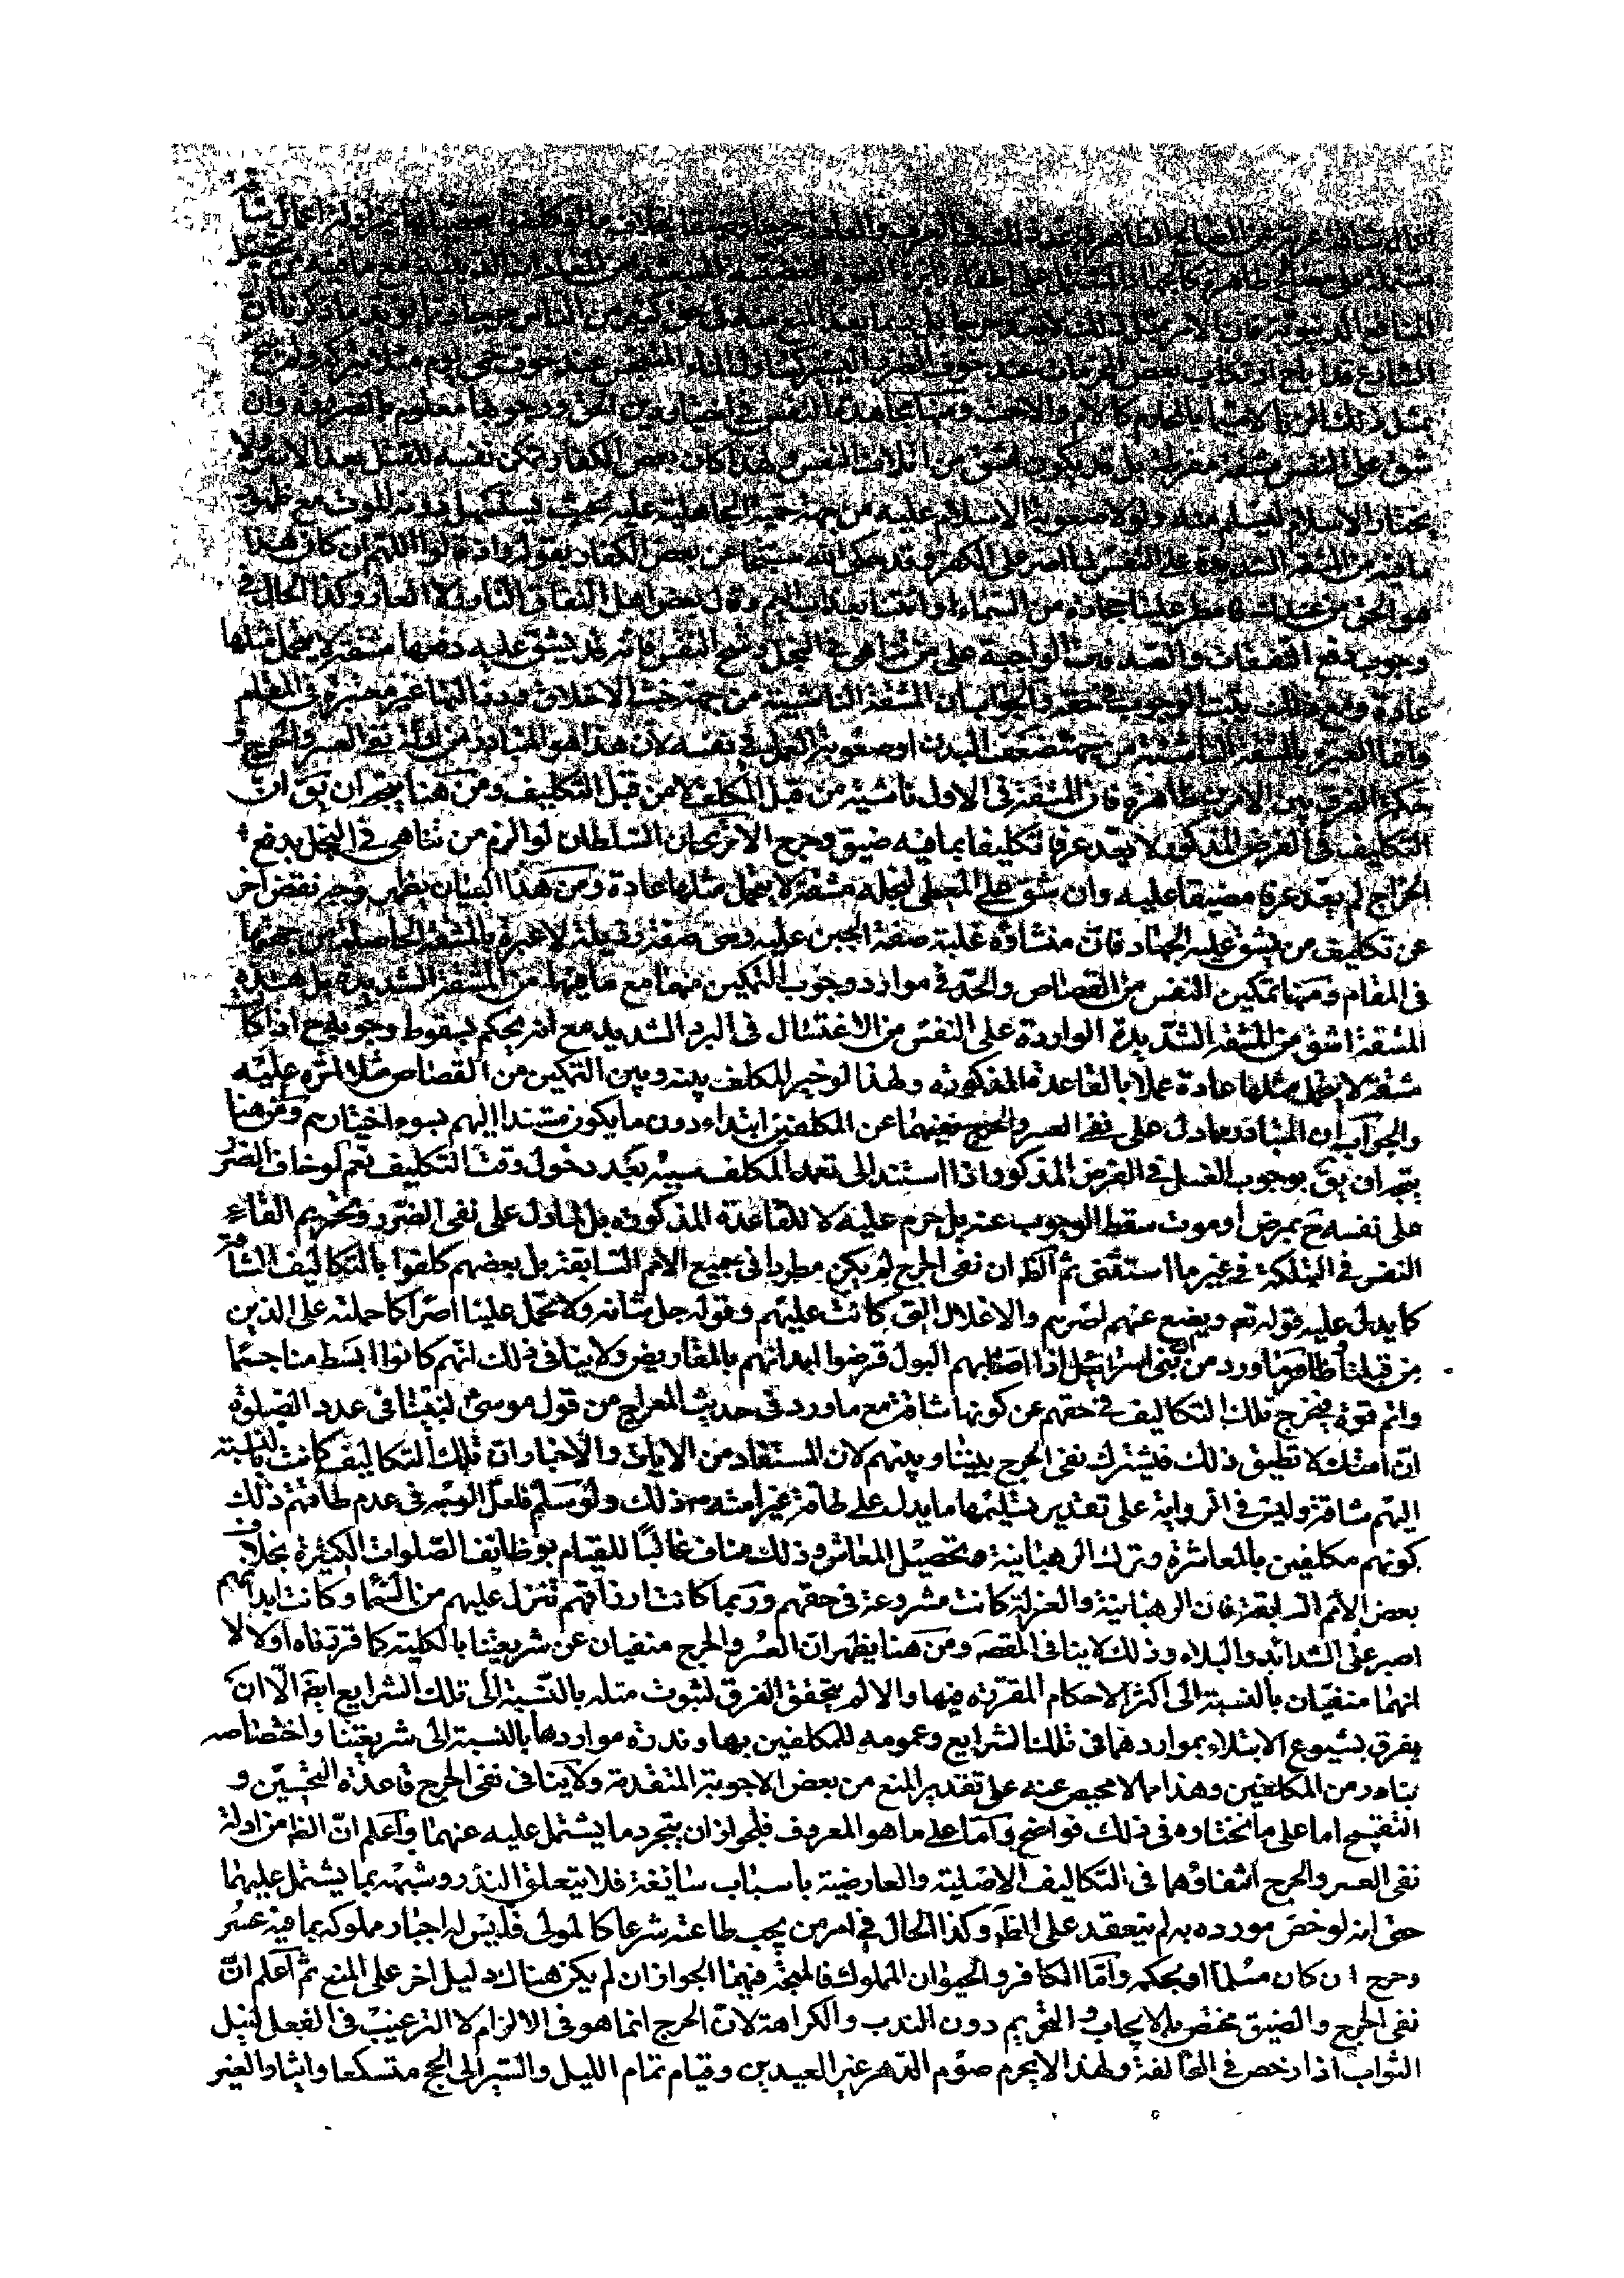 المنافع الدنيوية فان الامر بمثل ذلك لا يعد حرجا بل ربما يعد المنع منه في حق كثير من الناس حرجا ومما يؤيد ما ذكرنا ان
الشارع قد اباح ارتكاب بعض المحرمات عند خوف الضرر اليسير
شق على النفس مشقة بل قد يكون اشق من اتلاف النفس ولهذا كان بعض الكفار يمكن نفسه للقتل ولا
يختار الاسلام ليسلم منه ولولا صعوبة الاسلام عليه من جهة حمية الجاهلية عليه بحيث يستسهل دونه الموت مع ظهور
ما فيه من المشقة الشديدة على النفس لما اصر على الكفر وقد حكى الله عن بعض الكفار بقوله واذ قالوا اللهم ان كان هذا
هو الحق من عندك فامطر علينا حجارة من السماء او ائتنا بعذاب اليم وقول بعض اهل النفاق النار ولا العار وكذا الحال في
وجوب دفع النفقات والصدقات الواجبة على من تناهى في البخل وشح النفس فانه قد يشق عليه دفعها مشقة لا يتحمل مثلها
عادة ومع ذلك يثبت الوجوب في حقه والجواب ان المشقة الناشئة من جهة خبث الاخلاق ورذالتها غير معتبرة في المقام
وانما العبرة بالمشقة الناشئة من جهة ضعف البدن او صعوبة العمل في نفسه لان هذا هو المتبادر من ادلة نفي العسر والحرج و
حكمة الفرق بين الامرين ظاهرة فان المشقة في الاول ناشئة من قبل المكلف لا من قبل التكليف ومن هنا يتجه ان يق ان
التكليف في الفرض المذكور لا يعد عرفا تكليفا بما فيه ضيق وحرج الا ترى ان السلطان لو الزم من تناهى في البخل بدفع
الخراج لم يعد عرفا مضيقا عليه وان شق على المعطي لبخله مشقة لا يتحمل مثلها عادة ومن هذا البيان يظهر وجه نقض اخر
عن تكليف من يشق عليه الجهاد فان منشاؤه غلبة صفة الجبن عليه وهي صفة رذيلة لا عبرة بالمشقة الحاصلة من جهتها
في المقام ومنها تمكين النفس من القصاص والحد في موارد وجوب التمكين منها مع ما فيها من المشقة الشديدة بل هذه
المشقة اشق من المشقة الشديدة الواردة على النفس من الاغتسال في البرد الشديد مع انه يحكم بسقوط وجوبه ح اذا كانت
مشقة لا يتحمل مثلها عادة عملا بالقاعدة المذكورة ولهذا لو خير المكلف بينه وبين التمكين من القصاص مثلا لاثره عليه
والجواب ان المتبادر مما دل على نفي العسر والحرج نفيهما عن المكلفين ابتداء دون ما يكون مستندا اليهم بسوء اختيارهم ومن هنا
يتجه ان يق بوجوب الغسل في الفرض المذكور اذا استند الى تعمد المكلف سببه بعد دخول وقت التكليف نعم لو خاف الضرر
على نفسه ح بمرض او موت سقط الوجوب عنه بل حرم عليه لا للقاعدة المذكورة بل لما دل على نفي الضرر وتحريم القاء
النفس في التهلكة في غير ما استثنى ثم الظ ان نفي الحرج لم يكن مطردا في جميع الامم السابقة بل بعضهم كلفوا بالتكاليف الشاقة
كما يدل عليه قوله تع ويضع عنهم اصرهم والاغلال التي كانت عليهم وقوله جل شانه ولا تحمل علينا اصرا كما حملته على الذين
من قبلنا وما ورد من ان بني اسرائيل اذا اصابهم البول قرضوا ابدانهم بالمقاريض ولا ينافي ذلك انهم كانوا ابسط منا جسما
واتم قوة فيخرج تلك التكاليف في حقهم عن كونها شاقة مع ما ورد في حديث المعراج من قول موسى لنبينا في عدد الصلوة
ان امتك لا تطيق ذلك فيشترك نفي الحرج بيننا وبينهم لان المستفاد من الايات والاخبار ان تلك التكاليف كانت بالنسبة
اليهم شاقة وليس في الرواية على تقدير تسليمها ما يدل على طاقة غير امته ص ذلك ولو سلم فلعل الوجه في عدم طاقتهم ذلك
كونهم مكلفين بالمعاشرة وترك الرهبانية وتحصيل المعاش وذلك مناف غالبا للقيام بوظائف الصلوات الكثيرة بخلاف
بعض الامم السابقة فان الرهبانية والعزلة كانت مشروعة في حقهم وربما كانت ارزاقهم تنزل عليهم من السماء وكانت ابدانهم
اصبر على الشدائد والبلاء وذلك لا ينافي المقصه ومن هنا يظهر ان العسر والحرج منفيان عن شريعتنا بالكلية كما قررناه اولا لا
انهما منفيان بالنسبة الى اكثر الاحكام المقررة فيها والا لم يتحقق الفرق لثبوت مثله بالنسبة الى تلك الشرايع ايضا الا ان
يفرق بشيوع الابتلاء بمواردهما في تلك الشرايع وعمومه للمكلفين بها وندرة مواردهما بالنسبة الى شريعتنا واختصاصه
بنادر من المكلفين وهذا مما لا محيص عنه على تقدير المنع من بعض الاجوبة المتقدمة ولا ينافي نفي الحرج قاعدة التحسين و
التقبيح اما على ما نختاره في ذلك فواضح واما على ما هو المعروف فلجواز ان يتجرد ما يشتمل عليه عنهما واعلم ان الظ من ادلة
نفي العسر والحرج انتفاؤهما في التكاليف الاصلية والعارضية باسباب سائغة فلا يتعلق النذر وشبهه بما يشتمل عليهما
حتى انه لو خص مورده به لم يتعقد على الظ وكذا الحال في امر من يجب طاعته شرعا كالمولى فليس له اجبار مملوكه بما فيه عسر
وحرج ان كان مسلما او بحكمه واما الكافر والحيوان المملوك فالمتجه فيهما الجواز ان لم يكن هناك دليل اخر على المنع ثم اعلم ان
نفي الحرج والضيق مختص بالايجاب والتحريم دون الندب والكراهة لان الحرج انما هو في الالزام لا الترغيب في الفعل لنيل
الثواب اذا رخص في المخالفة ولهذا لا يحرم صوم الدهر غير العيدين وقيام تمام الليل والسير الى الحج متسكعا وايثار الغير